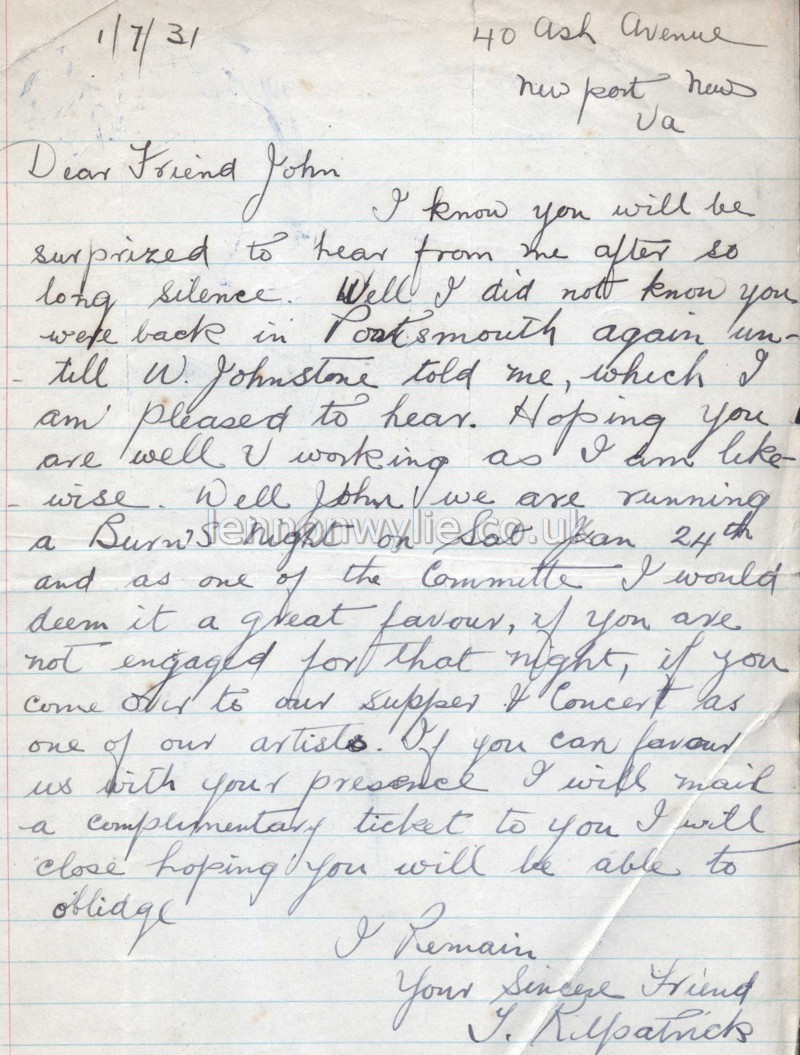 1/7/31
40 Ash Avenue
Newport News
Va
Dear Friend John
I know you will be
surprized to hear from me after so
long silence. Well I did not know you
were back in Portsmouth again un-
- till W. Johnstone told me, which I
am pleased to hear. Hoping you
are well & working as I am like-
- wise. Well John we are running
a Burn's Night on Sat Jan 24th
lennonwylie.co.uk
and as one of the Committe I would
deem it a great favour, if you are
not engaged for that night, if you
come over to our supper & Concert as
one of our artists. If you can favour
us with your presence I will mail
a complimentary ticket to you I will
close hoping you will be able to
oblidge
I Remain
Your Sincere Friend
Kilpatrick